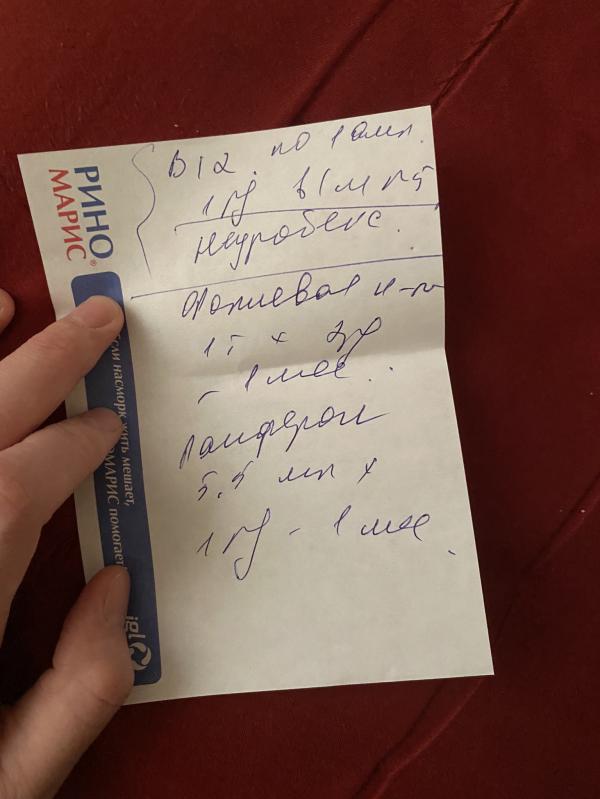 РИНО
МАРИС®
Если насморк жить мешает,
РИНОМАРИС помогает
igl
B12 по 1 амп.
1 рд в/м №5
Неуробекс.
Фолиевая к-та
1т x 2рд
- 1 мес.
Ранферон
5,5 мл x
1 рд - 1 мес